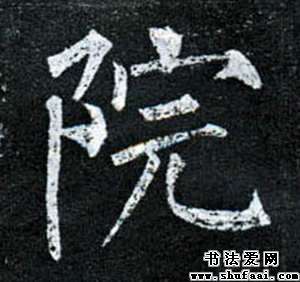 院
书法爱网
www.shufaai.com